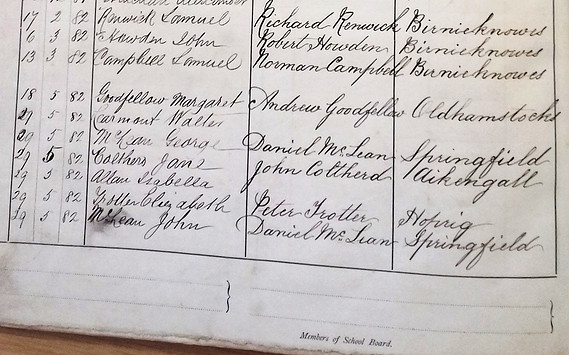 17 2 82 Renwick Samuel Richard Renwick Birnieknowes
6 3 82 Howden John Robert Howden Birnieknowes
13 3 82 Campbell Samuel Norman Campbell Birnieknowes
18 5 82 Goodfellow Margaret Andrew Goodfellow Oldhamstocks
29 5 82 Carmont Walter
29 5 82 McLean George Daniel McLean Springfield
29 5 82 Coltherd Jane John Coltherd Aikengall
29 5 82 Allan Isabella
29 5 82 Trotter Elizabeth Peter Trotter Hoprig
29 5 82 McLean John Daniel McLean Springfield
Members of School Board.